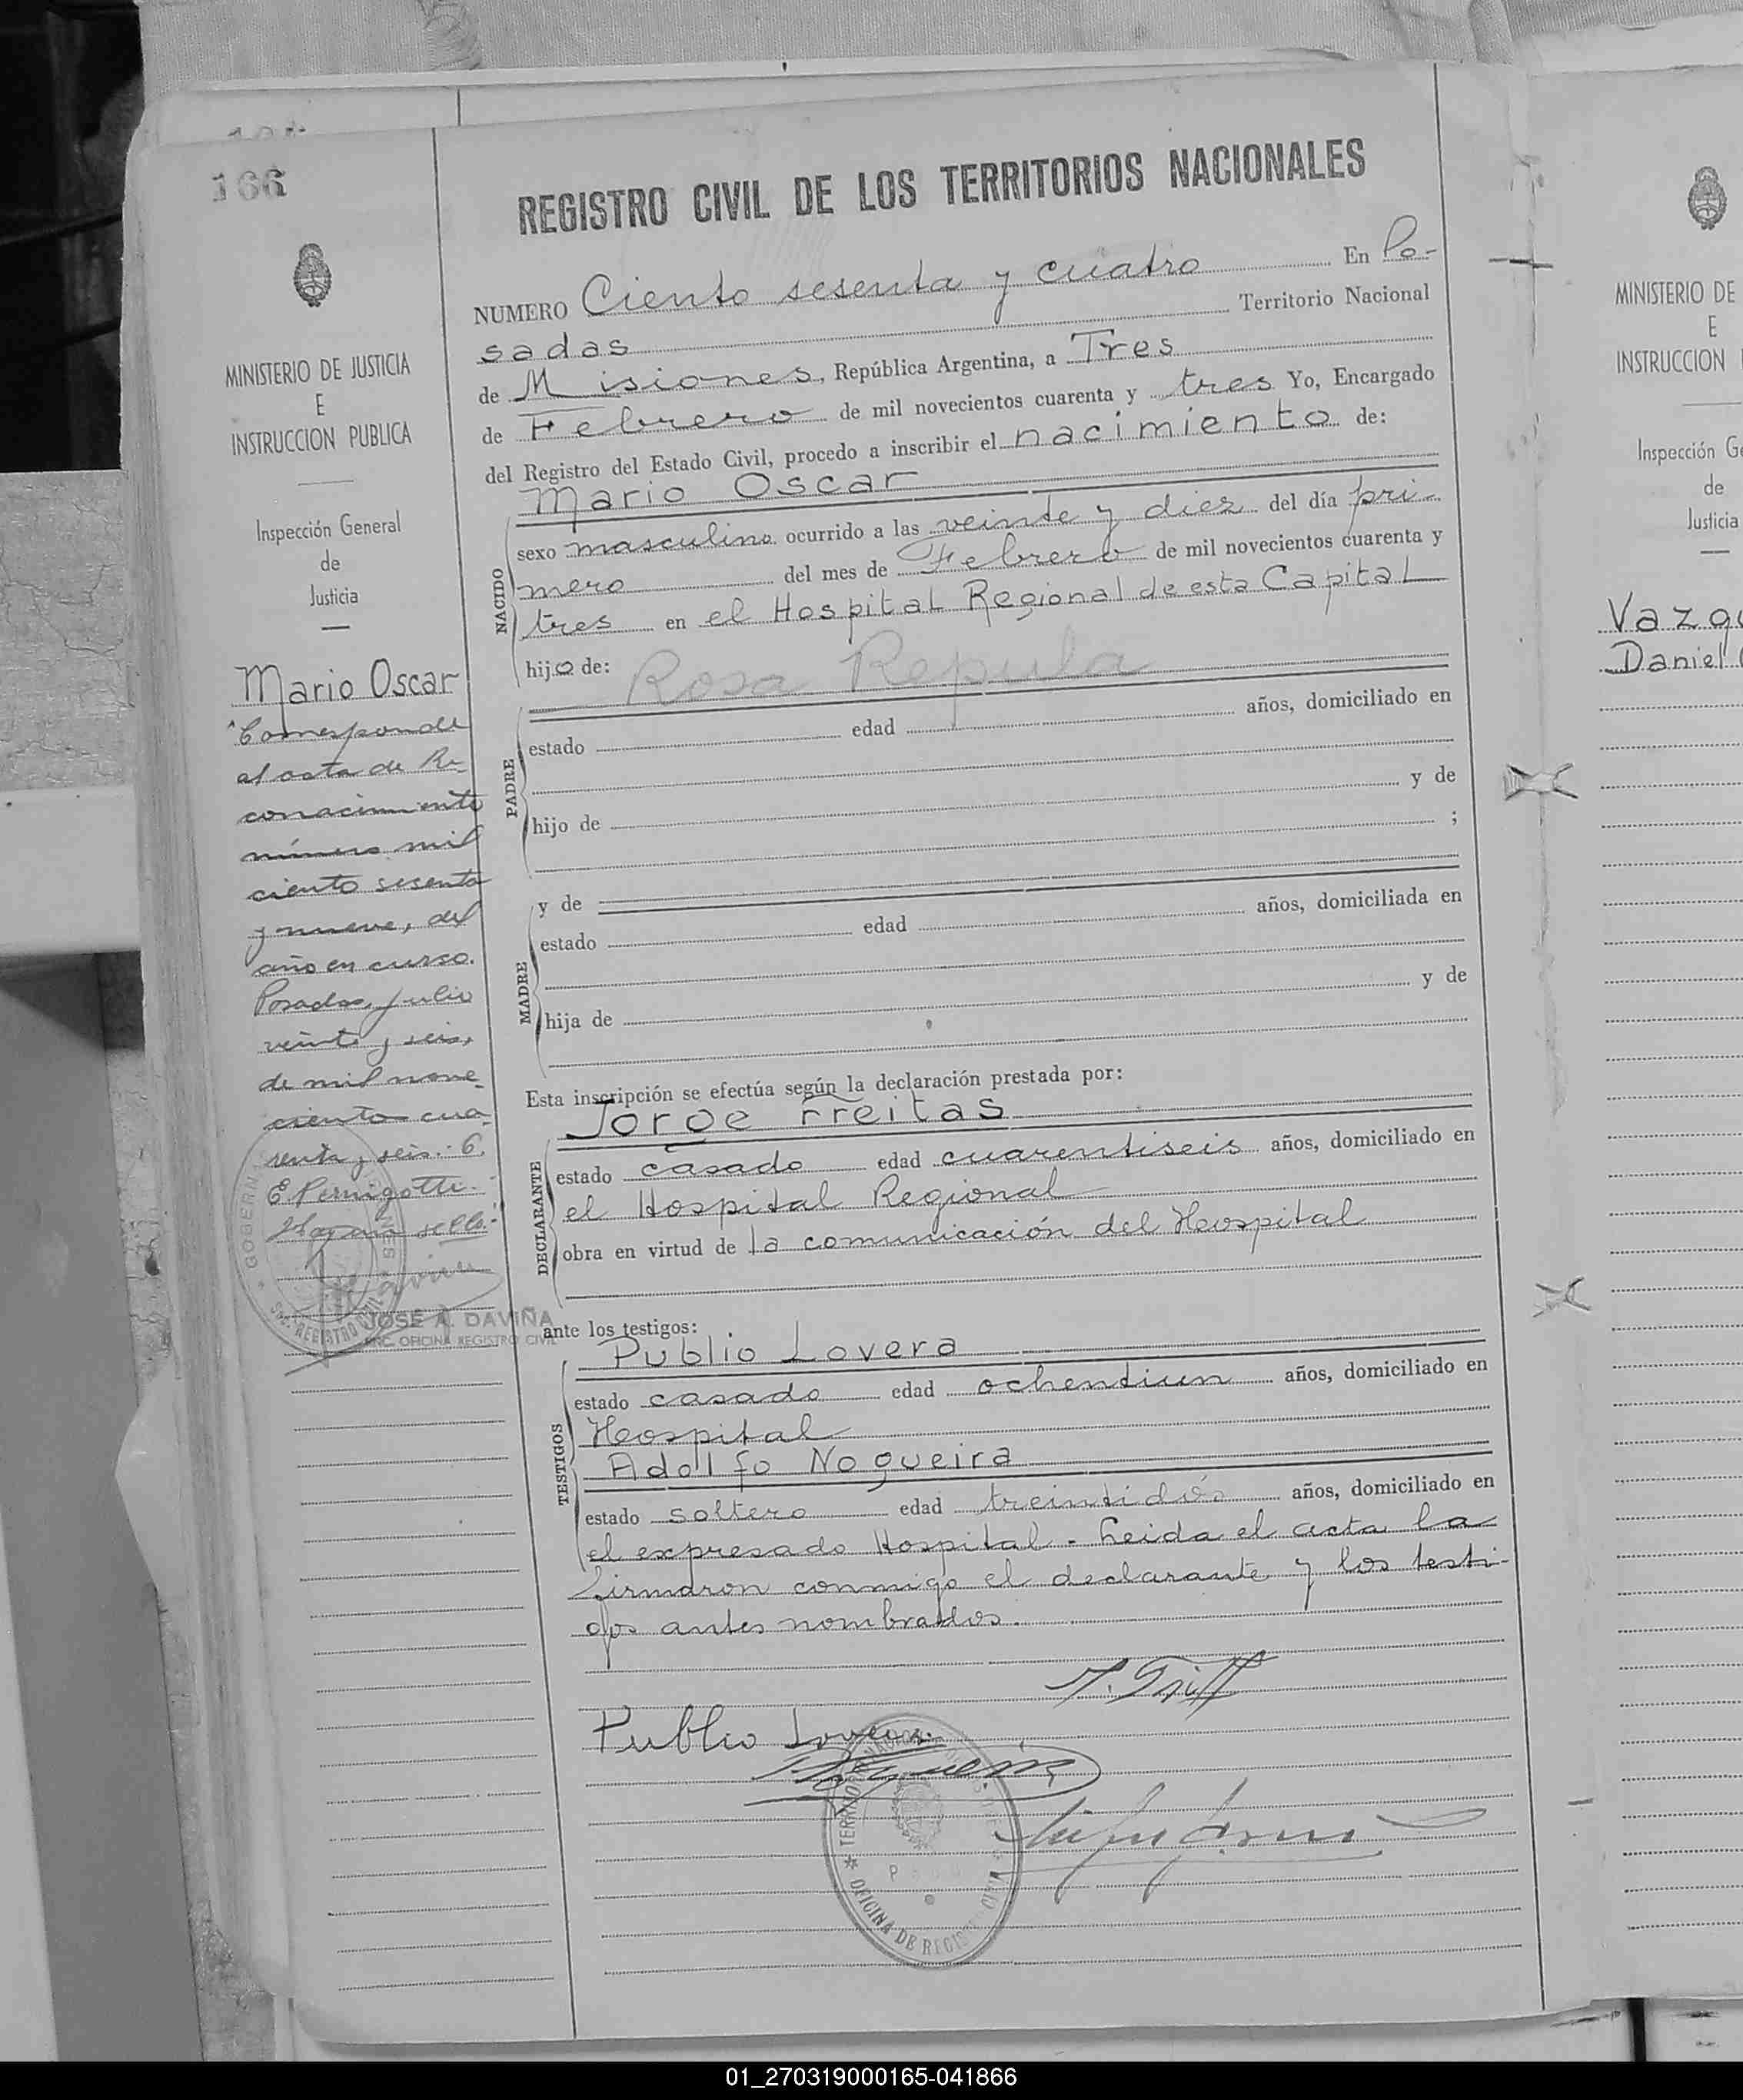 166
REGISTRO CIVIL DE LOS TERRITORIOS NACIONALES
NUMERO Ciento sesenta y cuatro En Po-
sadas Territorio Nacional
de Misiones, República Argentina, a Tres
de Febrero de mil novecientos cuarenta y tres Yo, Encargado
del Registro del Estado Civil, procedo a inscribir el nacimiento de:
NACIDO
Mario Oscar
sexo masculino ocurrido a las veinte y diez del día pri-
mero del mes de Febrero de mil novecientos cuarenta y
tres en el Hospital Regional de esta Capital
hijo de: Rosa Repula
PADRE
estado edad años, domiciliado en
y de
hijo de
;
y de
MADRE
estado edad años, domiciliada en
y de
hija de
Esta inscripción se efectúa según la declaración prestada por:
DECLARANTE
Jorge Freitas
estado casado edad cuarentiseis años, domiciliado en
el Hospital Regional
obra en virtud de la comunicación del Hospital
ante los testigos:
TESTIGOS
Publio Lovera
estado casado edad ochentiun años, domiciliado en
Hospital
Adolfo Nogueira
estado soltero edad treintidós años, domiciliado en
el expresado Hospital. Leida el acta la
firmaron conmigo el declarante y los testi-
gos antes nombrados.
Publio Lovera
OFICINA DE REGIST
MINISTERIO DE JUSTICIA
E
INSTRUCCION PUBLICA
Inspección General
de
Justicia
Mario Oscar
"Corresponde
al acta de Re-
conocimiento
número mil
ciento sesenta
y nueve, del
año en curso.
Posadas, julio
veinte y seis,
de mil nove-
cientos cua-
renta y seis.: 6.
E. Pernigotti.
Hay un sello.-
JOSE A. DAVIÑA
ENC. OFICINA REGISTRO CIVIL
MINISTERIO DE
E
INSTRUCCION
Inspección Ge
de
Justicia
Vazqu
Daniel
01_270319000165-041866